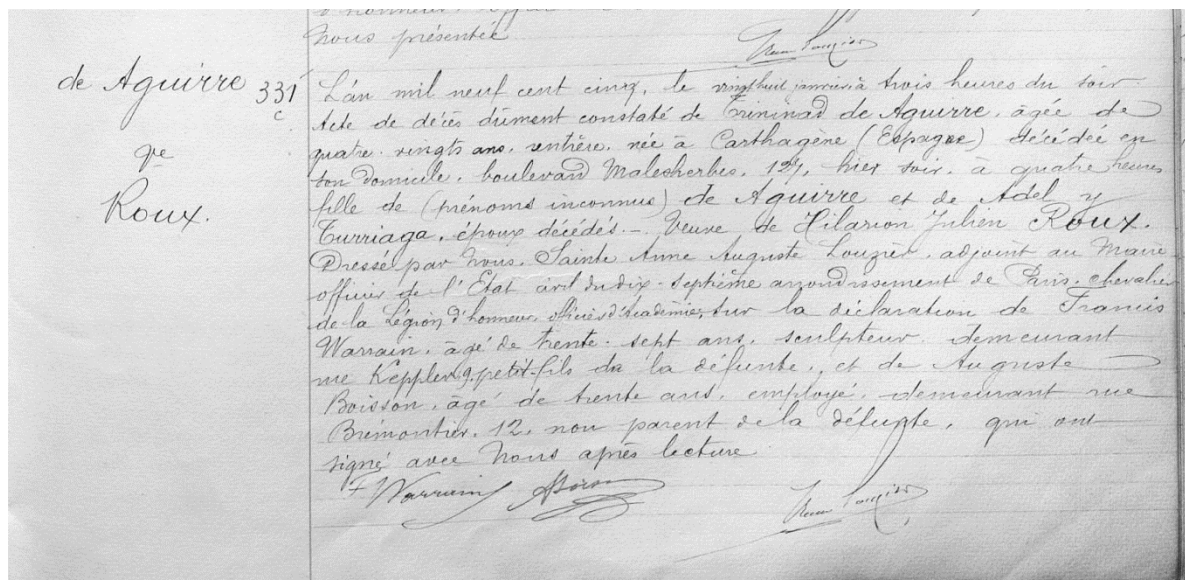 nous présentée
de Aguirre
qe
Roux.
331
L'an mil neuf cent cinq, le vingt huit janvier à trois heures du soir
Acte de décès dûment constaté de Trininad de Aguirre, âgée de
quatre-vingts ans, rentière, née à Carthagène (Espagne) décédée en
son domicile, boulevard Malesherbes, 127, hier soir, à quatre heures
fille de (prénoms inconnus) de Aguirre et de Adel y
Turriaga, époux décédés. - Veuve de Hilarion Julien Roux.
Dressé par Nous, Sainte Anne Auguste Louzier, adjoint au Maire
officier de l'Etat civil du dix-septième arrondissement de Paris, chevalier
de la Légion d'honneur, officier d'Académie, sur la déclaration de Francis
Warrain, âgé de trente-sept ans, sculpteur, demeurant
rue Keppler, 9, petit-fils de la défunte, et de Auguste
Boisson, âgé de trente ans, employé, demeurant rue
Brémontier, 12, non parent de la défunte, qui ont
signé avec Nous après lecture
F Warrain